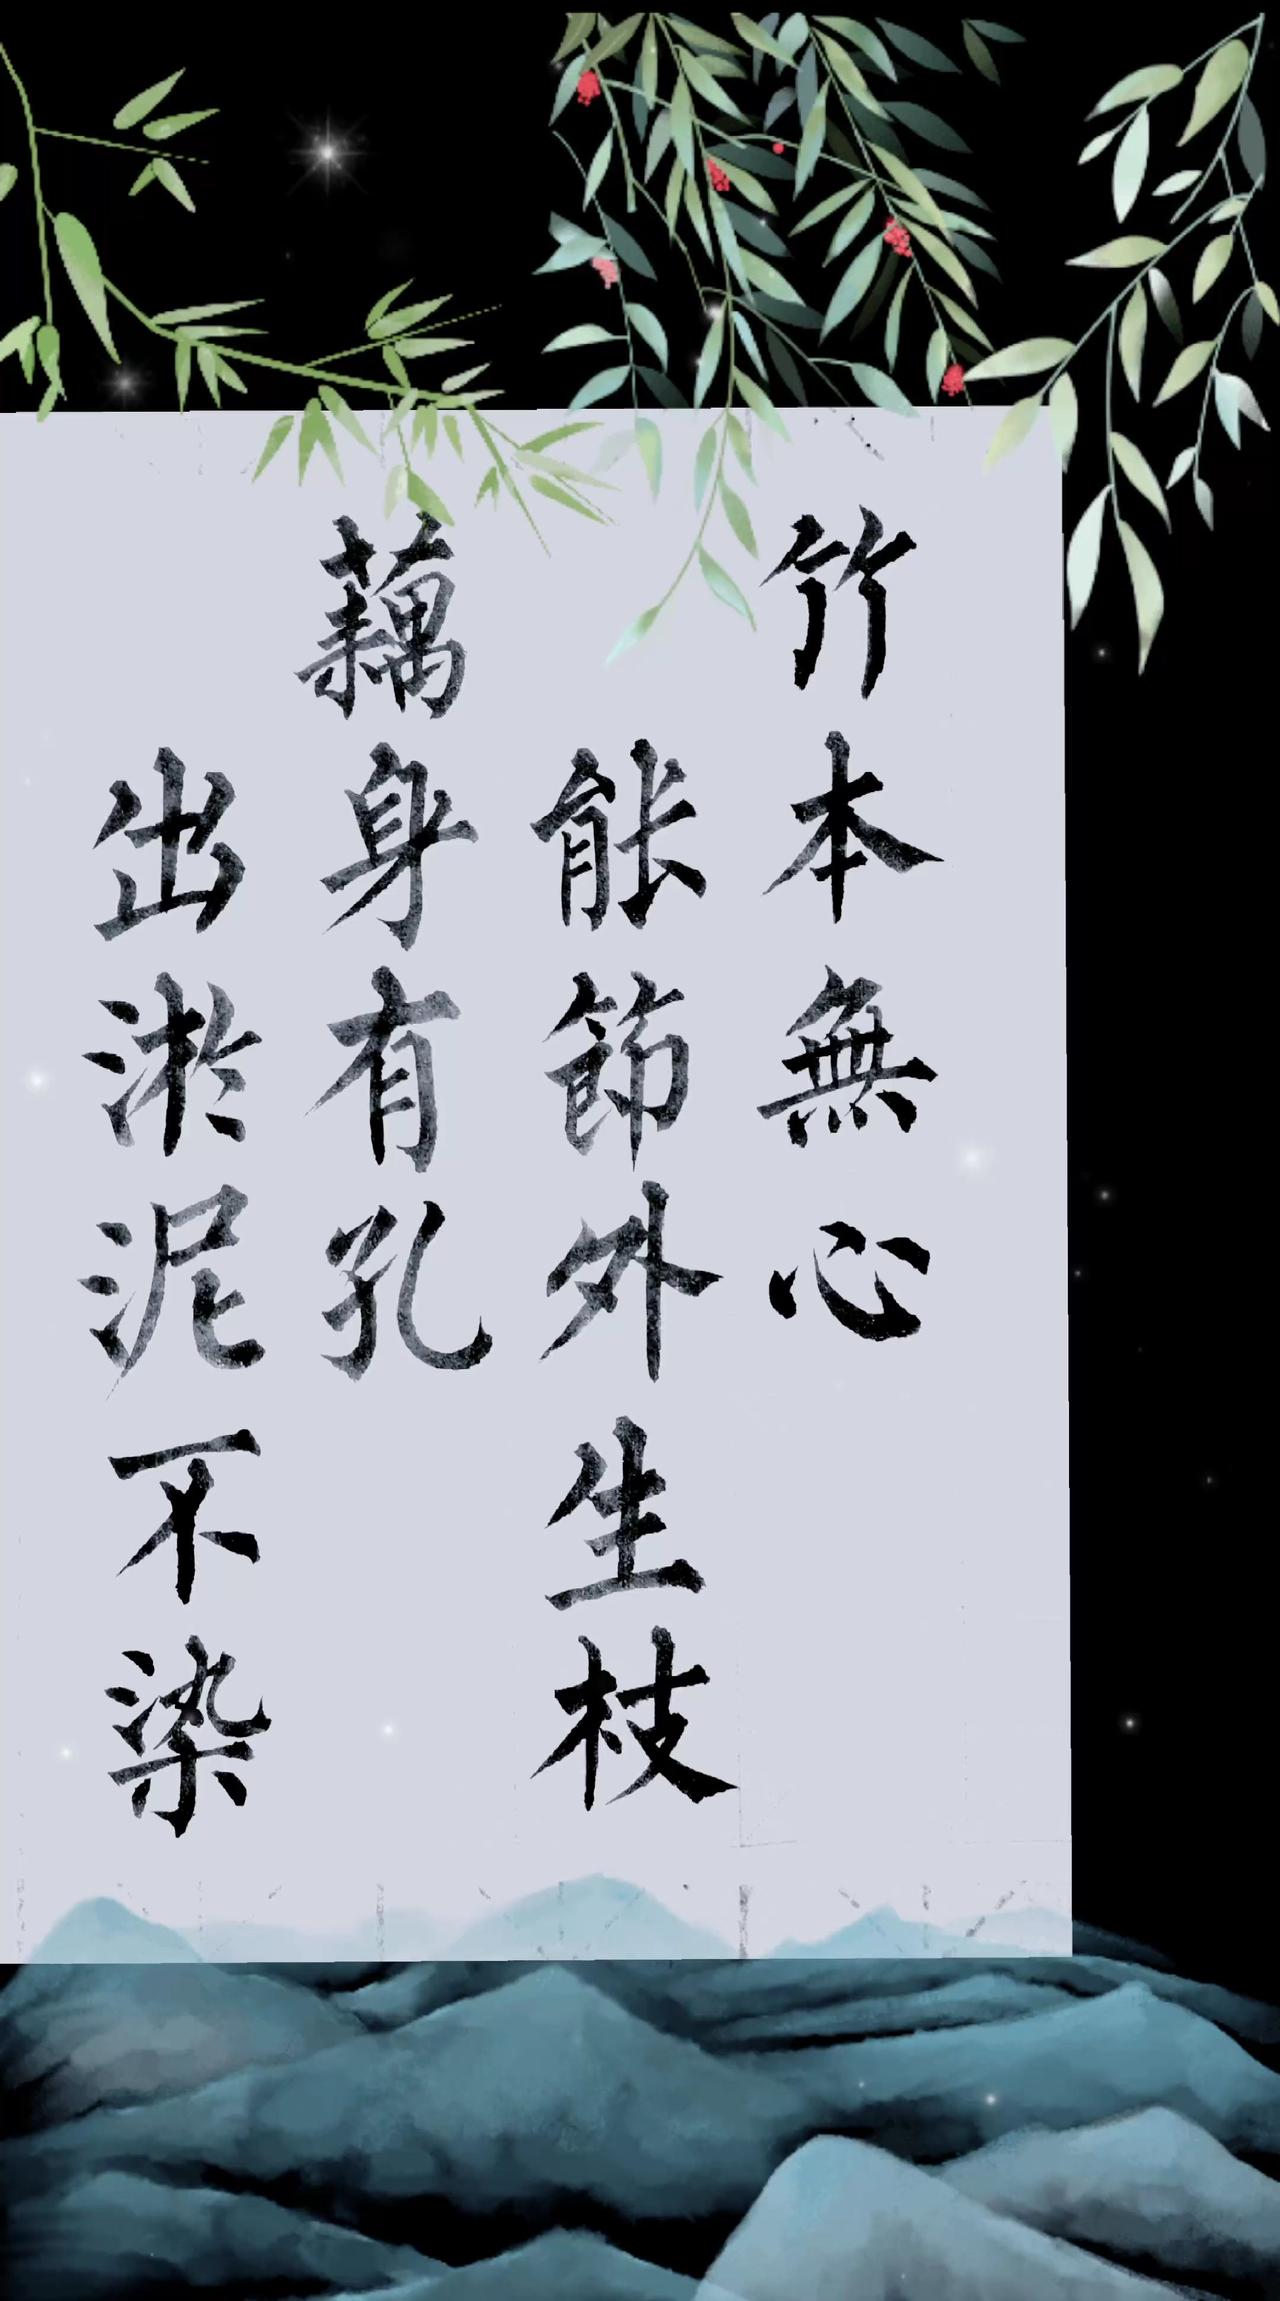 竹本無心
能節外生枝
藕身有孔
出淤泥不染